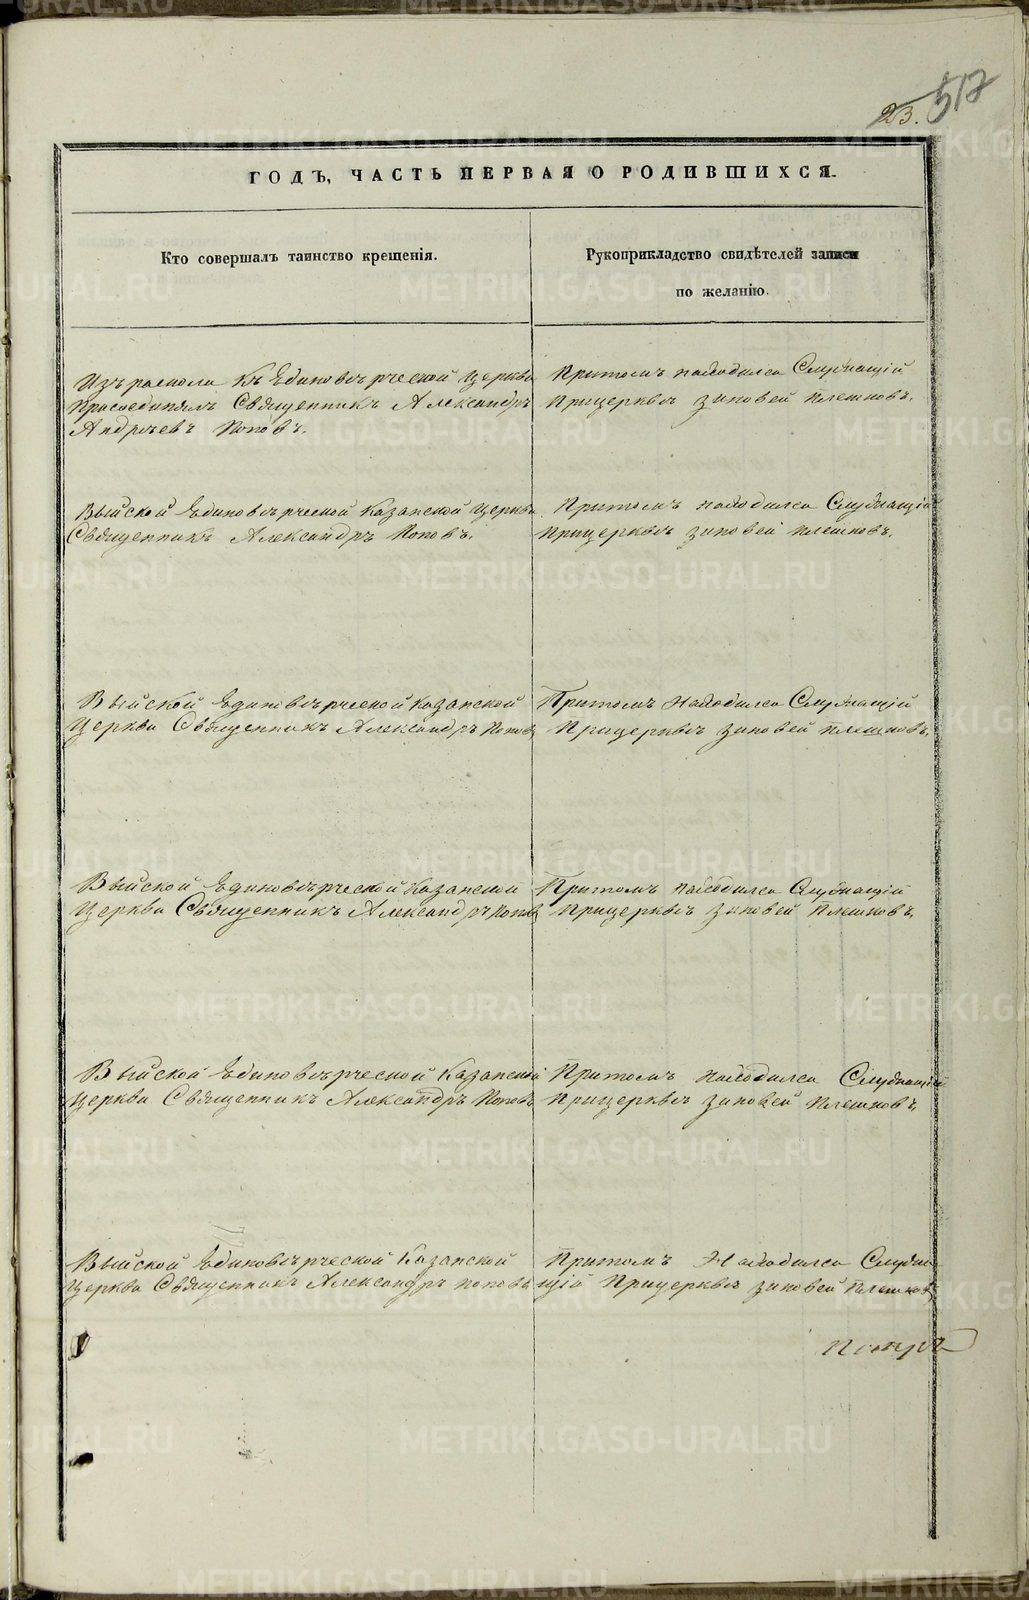 23. 517
ГОДЪ, ЧАСТЬ ПЕРВАЯ О РОДИВШИХСЯ.
Кто совершалъ таинство крещенія.
Рукоприкладство свидѣтелей записи
по желанію.
Изъ раскола къ Единовѣрческой Церкви
Присоединилъ Священникъ Александръ
Андрѣевъ Поповъ.
Притомъ находился Служащій
Прицерквѣ Зиновей Плешковъ.
Выйской Единовѣрческой Казанской Церкви
Священникъ Александръ Поповъ.
Притомъ находился Служащій
Прицерквѣ Зиновей Плешковъ.
Выйской Единовѣрческой Казанской
Церкви Священникъ Александръ Поповъ
Притомъ Находился Служащій
Прицерквѣ Зиновей Плешковъ.
Выйской Единовѣрческой Казанской
Церкви Священникъ Александръ Поповъ
Притомъ находился Служащій
Прицерквѣ Зиновей Плешковъ.
Выйской Единовѣрческой Казанской
Церкви Священникъ Александръ Поповъ
Притомъ находился Служащій
Прицерквѣ Зиновей Плешковъ.
Выйской Единовѣрческой Казанской
Церкви Священникъ Александръ Поповъ
Притомъ Находился Служа
щій Прицерквѣ Зиновей Плешковъ
METRIKI.GASO-URAL.RU